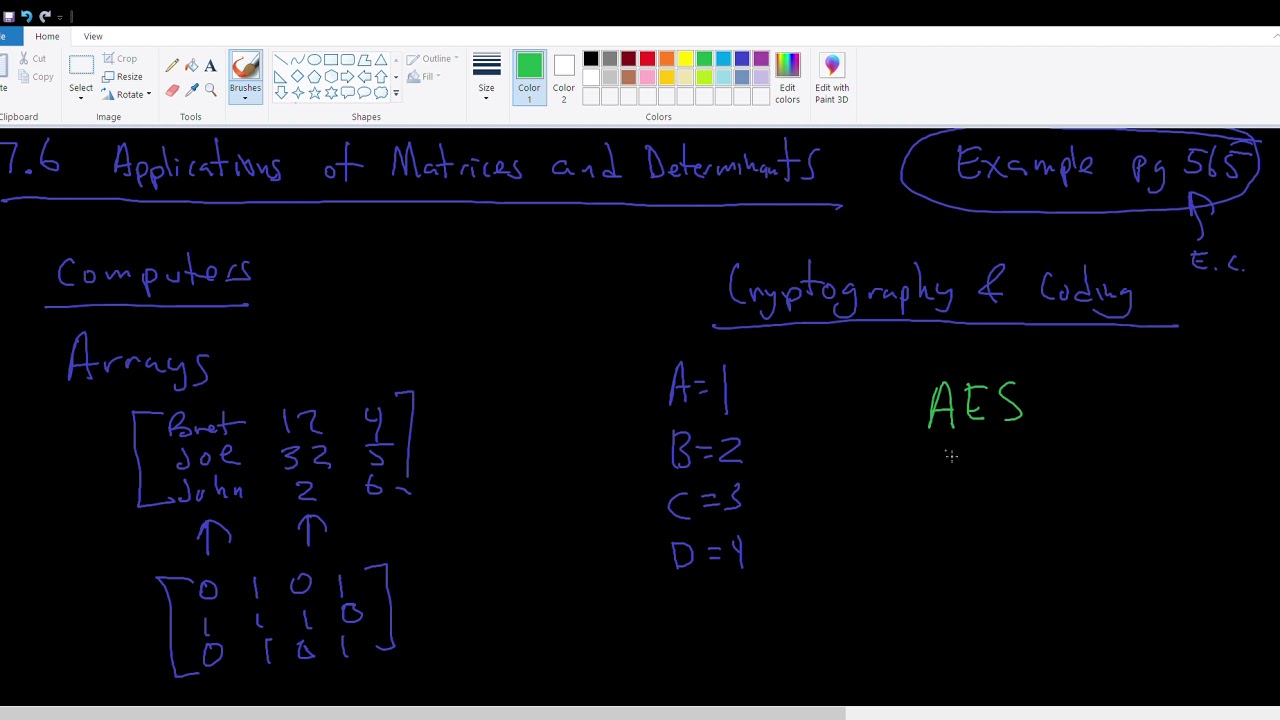 Home View
Crop
Copy
Select
Resize
Rotate
Brushes
Outline
Fill
Size
Color 1
Color 2
Edit colors
Edit with Paint 3D
Clipboard
Image
Tools
Shapes
Colors
7.6 Applications of Matrices and Determinants
Example pg 565
E.C.
Computers
Arrays
Bret 12 4
Joe 32 5
John 2 6
0 1 0 1
1 1 1 0
0 1 0 1
Cryptography & Coding
A=1
B=2
C=3
D=4
AES